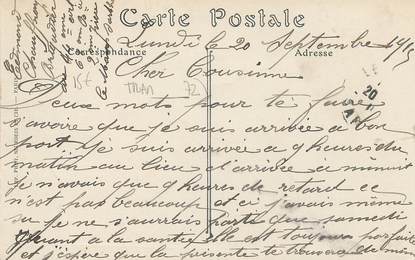 Carte Postale
Correspondance
Adresse
Lundi le 20 Septembre 1915
Cher Cousinne
Deux mots pour te faire
savoire que je suis arrivée a bon
port je suis arrivée a 9 heures du
matin au lieu d'arrivée a minuit
je n'avais que 9 heures de retard ce
n'est pas beaucoup et ci j'avais même
su je ne s'aurais parti que samedi
Quant a la santée elle est toujours parfaite
et j'espère que la présente te trouvera de même
Edmond
Brigadier
15€
72
20